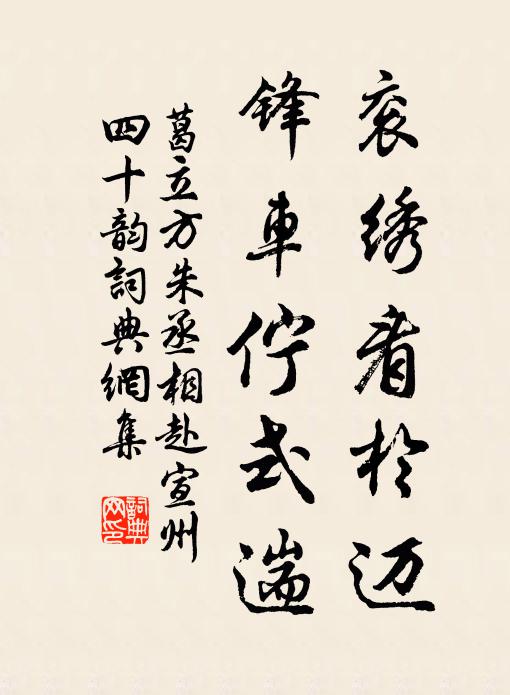 衮绣看於迈
锋車佇式遄
葛立方朱丞相赴宣州
四十韵詞典網集
詞典
网印